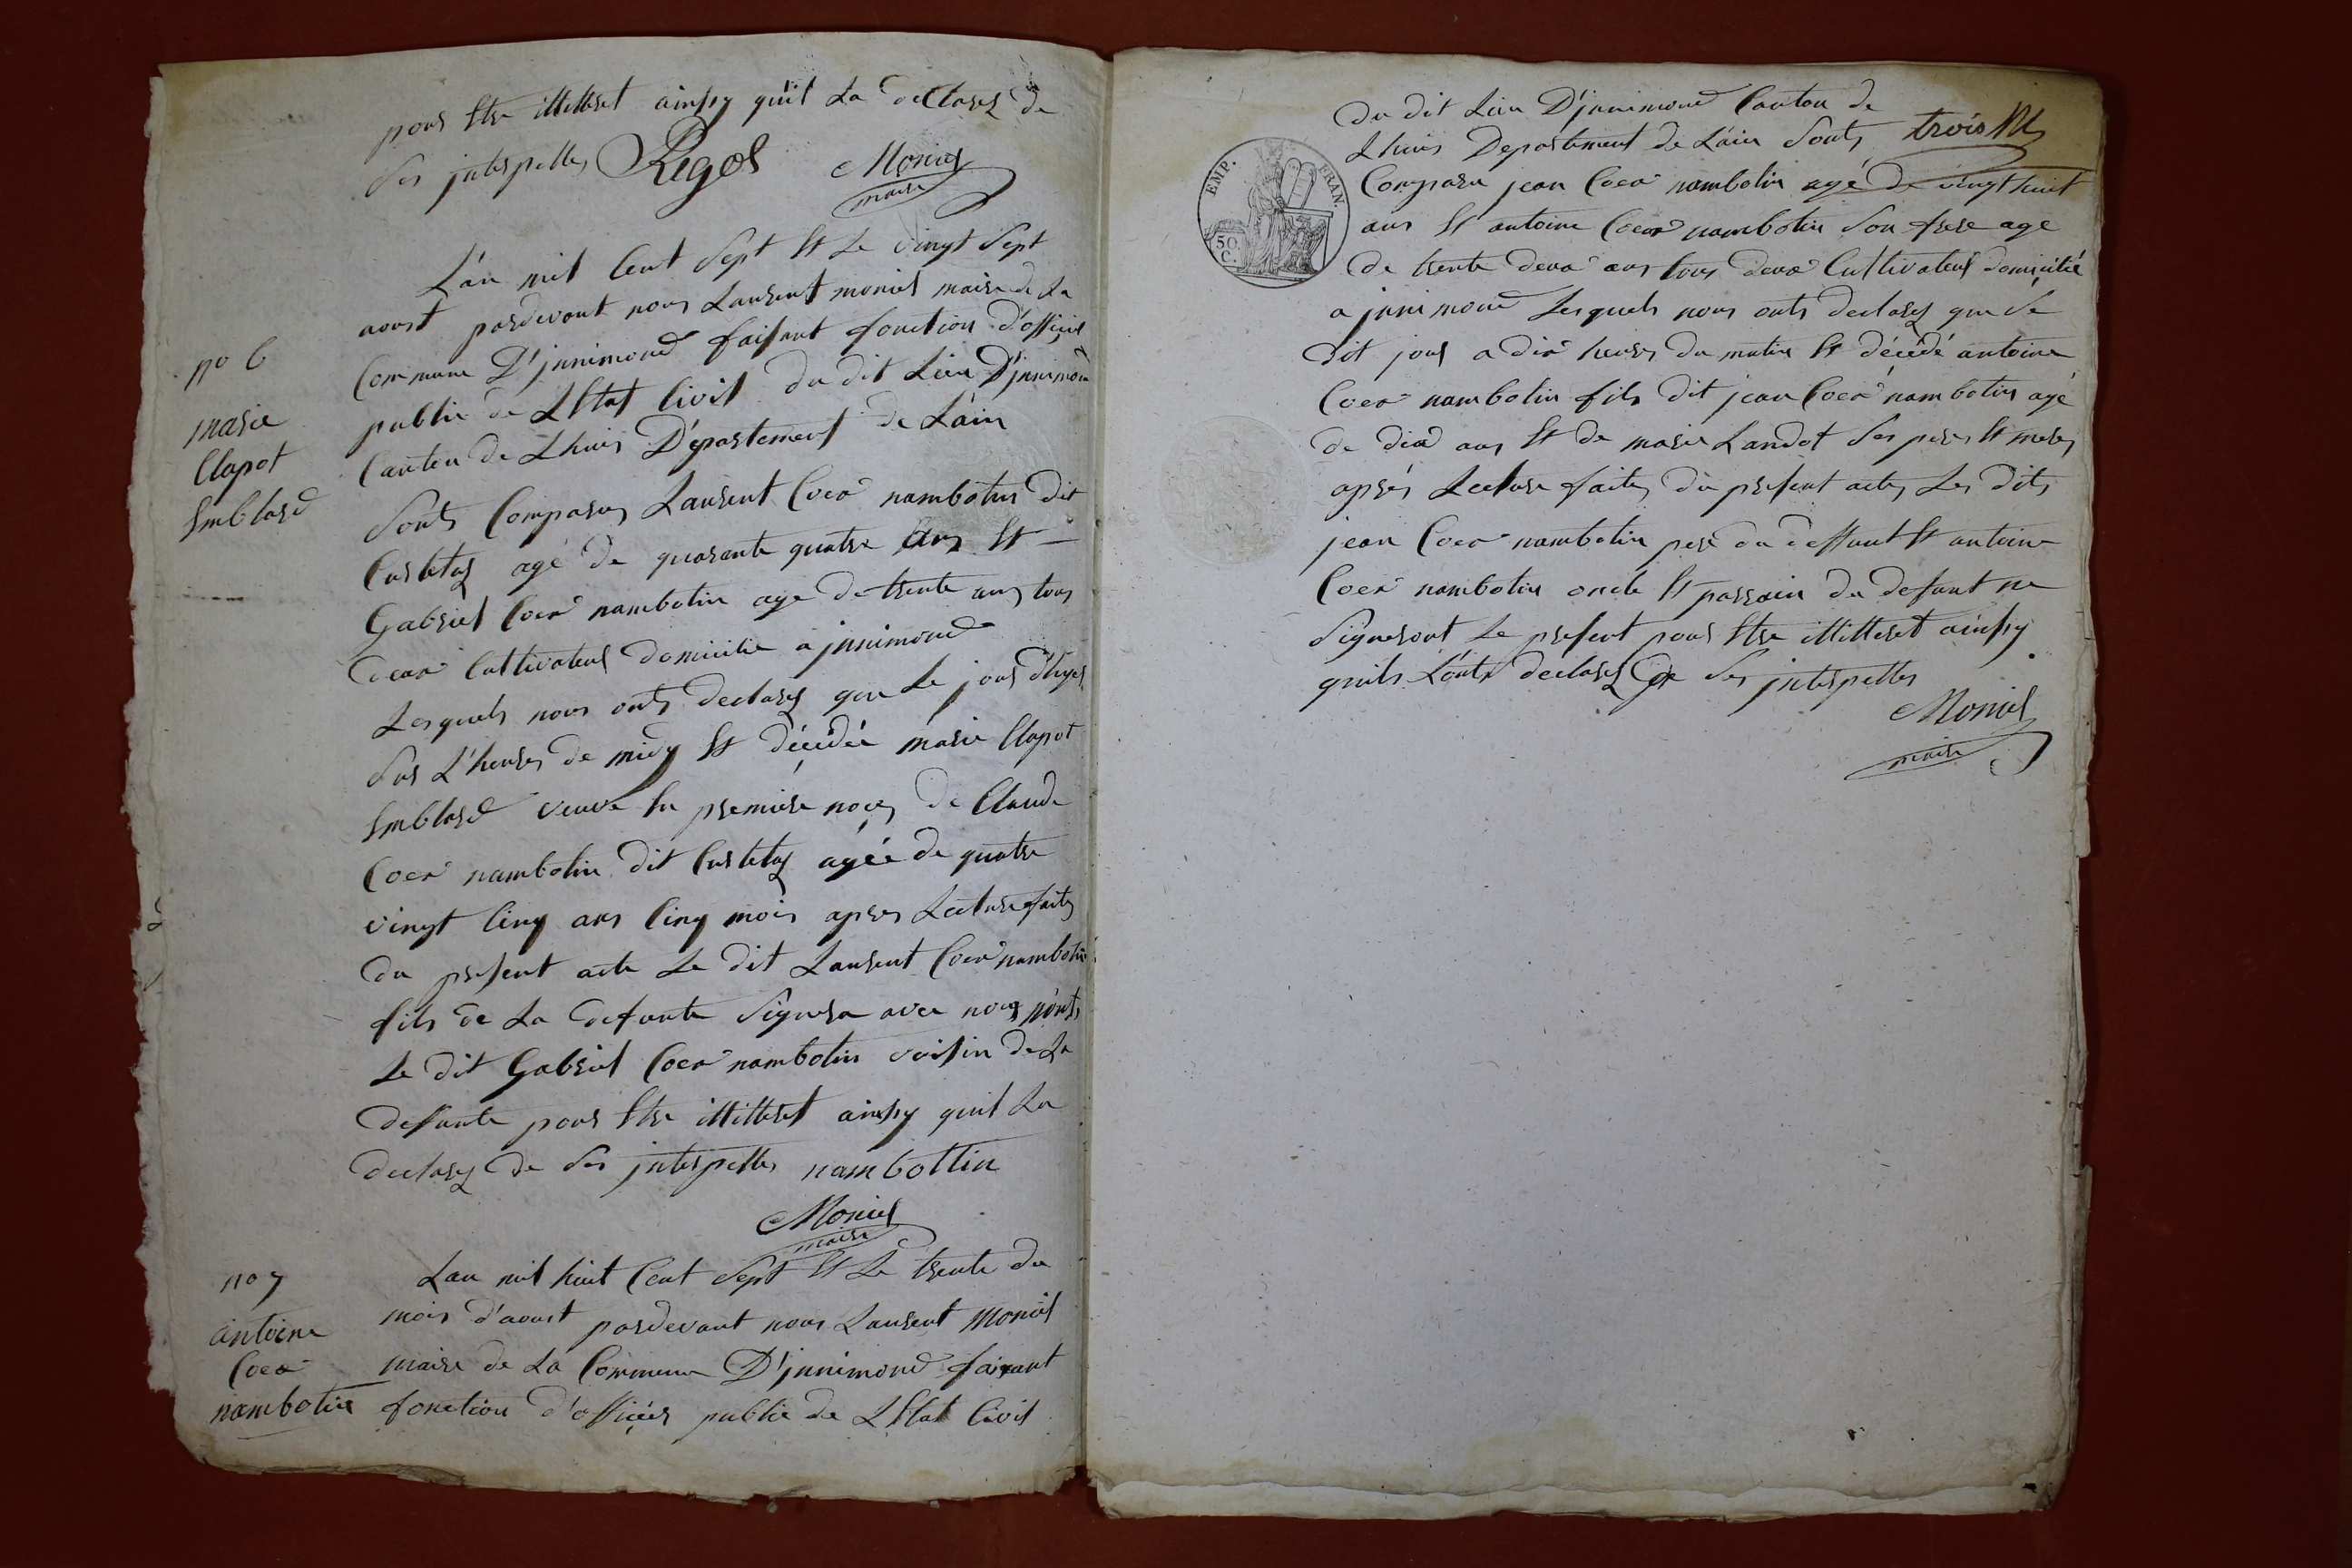 pour Etre illitteret ainssy quil La declarez de
Ses jnterpelles Rigol Monier
maire
L'an mil Cent Sept Et Le vingt Sept
aoust pardevant nous Laurent monier maire de La
no 6
Commune D'jnnimond faisant fonction d'officier
public de LEtat Civil du dit Lieu D'jnnimon
marie
Clapot
Emblard
Canton de Lhuis Département de L'ain
Sonts Comparus Laurent Coex nambotin dit
Curtetaz agé de quarante quatre ans Et
Gabriel Coex nambotin age de trente ans tous
deux Cultivateur domicilie a jnnimond
Lesquels nous onts declarez que Le jour d'hyer
Sur L'heure de midy Et décédée marie Clapot
Emblard veuve En premiere noces de Claude
Coex nambotin dit Curtetaz agée de quatre
vingt Cinq ans Cinq mois apres Lecture faite
du present acte Le dit Laurent Coex nambotin
fils de La defunte Signera avec nous nonts
Le dit Gabriel Coex nambotin voisin de La
deffunte pour Etre illitteret ainssy quil La
declarez de Ses jnterpelles nambottin
Monier
maire
no 7
Lan mil huit Cent Sept Et Le trente du
mois d'aoust pardevant nous Laurent Monier
antoine
Coex
nambotin
maire de La Commune D'jnnimond faisant
fonction d'officier public de LEtat Civil
du dit Lieu D'jnnimond Canton de
Lhuis Departement de L'ain Sonts trois
EMP. FRAN.
50 C.
Comparu jean Coex nambotin agé de vingt huit
ans Et antoine Coex nambotin Son frere age
de trente deux ans tous deux Cultivateur domicilié
a jnnimond Lesquels nous onts declarez que Se
dit jour a dix heures du matin Et décédé antoine
Coex nambotin fils dit jean Coex nambotin agé
de dix ans Et de marie Landot Ses peres Et meres
aprés Lecture faite du present acte Les dits
jean Coex nambotin pere du deffunt Et antoine
Coex nambotin oncle Et parrain du defunt ne
Signeront Le present pour Etre illitteret ainssy
quils L'onts declarez de Ses jnterpelles
Monier
maire